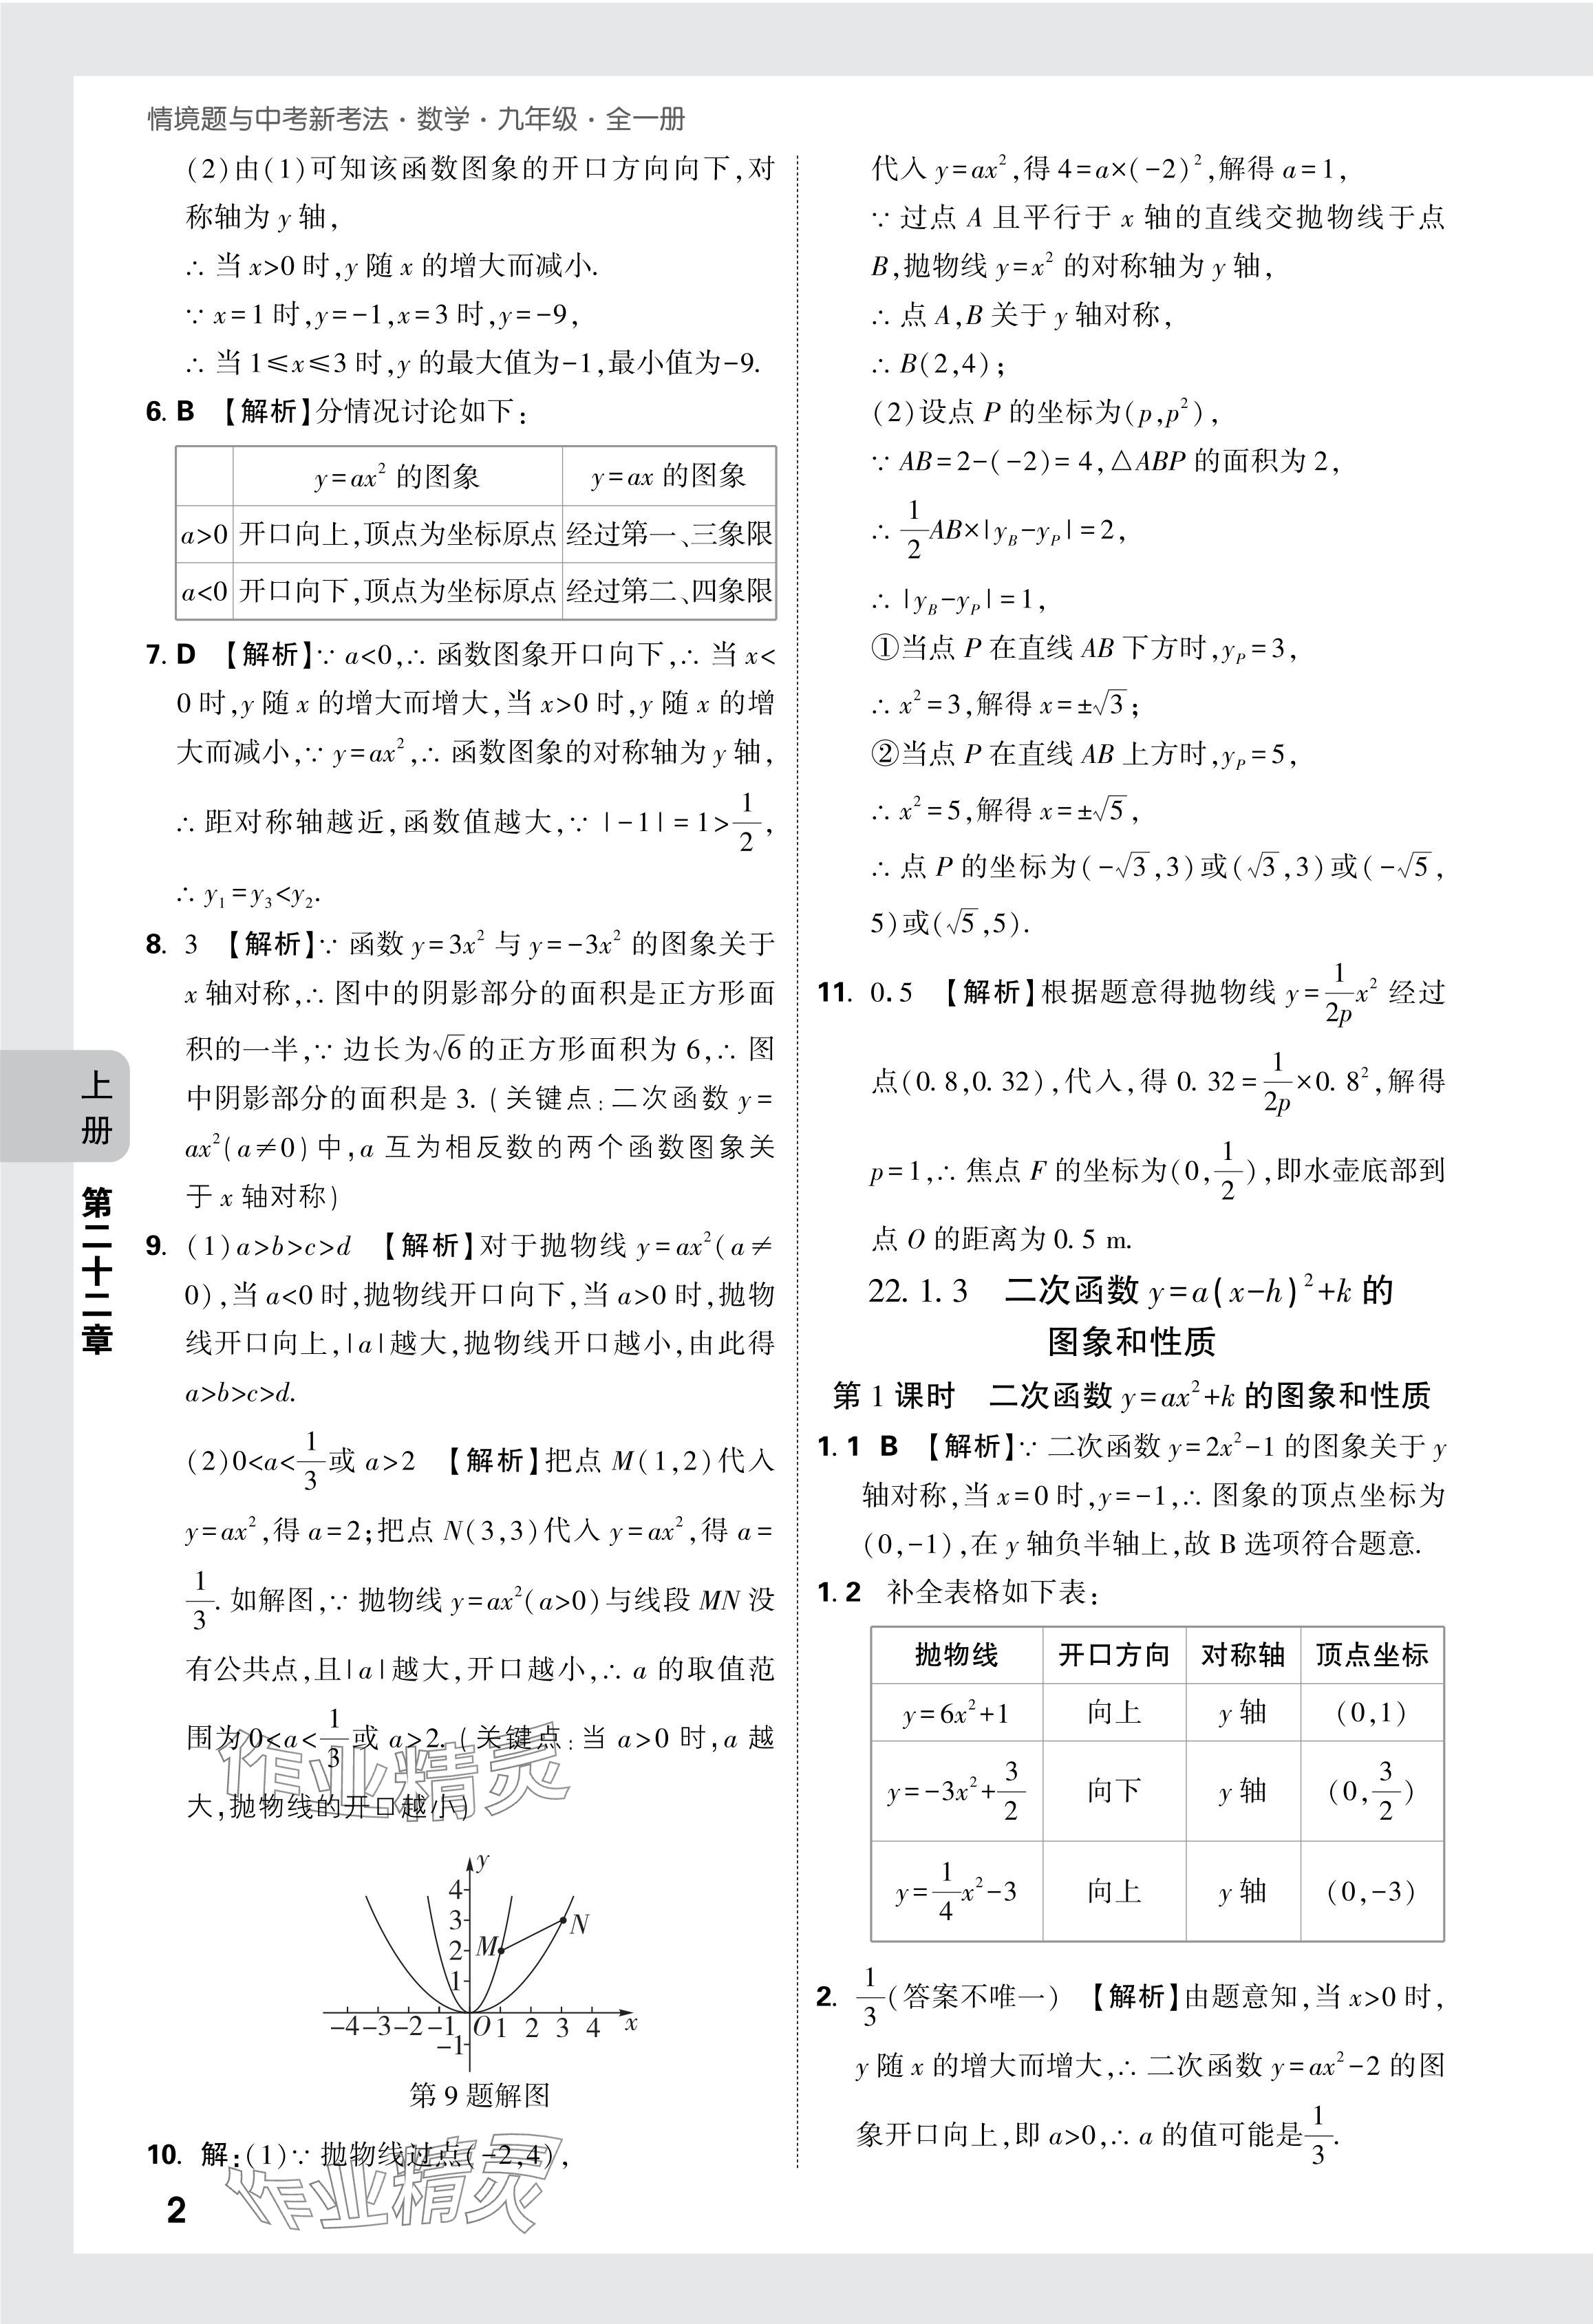 情境题与中考新考法·数学·九年级·全一册
(2)由(1)可知该函数图象的开口方向向下,对
称轴为 y 轴,
∴ 当 x>0 时,y 随 x 的增大而减小.
∵ x=1 时,y=-1,x=3 时,y=-9,
∴ 当 1≤x≤3 时,y 的最大值为-1,最小值为-9.
6. B 【解析】分情况讨论如下:
y=ax² 的图象 y=ax 的图象
a>0 开口向上,顶点为坐标原点 经过第一、三象限
a<0 开口向下,顶点为坐标原点 经过第二、四象限
7. D 【解析】∵ a<0,∴ 函数图象开口向下,∴ 当 x<
0 时,y 随 x 的增大而增大,当 x>0 时,y 随 x 的增
大而减小,∵ y=ax²,∴ 函数图象的对称轴为 y 轴,
∴ 距对称轴越近,函数值越大,∵ |-1|=1>1/2,
∴ y₁=y₃<y₂.
8. 3 【解析】∵ 函数 y=3x² 与 y=-3x² 的图象关于
x 轴对称,∴ 图中的阴影部分的面积是正方形面
积的一半,∵ 边长为√6的正方形面积为 6,∴ 图
中阴影部分的面积是 3. (关键点:二次函数 y=
ax²(a≠0)中,a 互为相反数的两个函数图象关
于 x 轴对称)
9. (1)a>b>c>d 【解析】对于抛物线 y=ax²(a≠
0),当 a<0 时,抛物线开口向下,当 a>0 时,抛物
线开口向上,|a|越大,抛物线开口越小,由此得
a>b>c>d.
(2)0<a<1/3或 a>2 【解析】把点 M(1,2)代入
y=ax²,得 a=2;把点 N(3,3)代入 y=ax²,得 a=
1/3. 如解图,∵ 抛物线 y=ax²(a>0)与线段 MN 没
有公共点,且|a|越大,开口越小,∴ a 的取值范
围为 0<a<1/3或 a>2. (关键点:当 a>0 时,a 越
大,抛物线的开口越小)
作业精灵
y
4
3
N
2
M
1
-4 -3 -2 -1 O 1 2 3 4 x
-1
第 9 题解图
10. 解:(1)∵ 抛物线过点(-2,4),
作业精灵
2
上册
第二十二章
代入 y=ax²,得 4=a×(-2)²,解得 a=1,
∵ 过点 A 且平行于 x 轴的直线交抛物线于点
B,抛物线 y=x² 的对称轴为 y 轴,
∴ 点 A,B 关于 y 轴对称,
∴ B(2,4);
(2)设点 P 的坐标为(p,p²),
∵ AB=2-(-2)=4,△ABP 的面积为 2,
∴ 1/2AB×|y_B-y_P|=2,
∴ |y_B-y_P|=1,
①当点 P 在直线 AB 下方时,y_P=3,
∴ x²=3,解得 x=±√3;
②当点 P 在直线 AB 上方时,y_P=5,
∴ x²=5,解得 x=±√5,
∴ 点 P 的坐标为(-√3,3)或(√3,3)或(-√5,
5)或(√5,5).
11. 0.5 【解析】根据题意得抛物线 y=1/(2p)x² 经过
点(0.8,0.32),代入,得 0.32=1/(2p)×0.8²,解得
p=1,∴ 焦点 F 的坐标为(0,1/2),即水壶底部到
点 O 的距离为 0.5 m.
22.1.3 二次函数 y=a(x-h)²+k 的
图象和性质
第 1 课时 二次函数 y=ax²+k 的图象和性质
1.1 B 【解析】∵ 二次函数 y=2x²-1 的图象关于 y
轴对称,当 x=0 时,y=-1,∴ 图象的顶点坐标为
(0,-1),在 y 轴负半轴上,故 B 选项符合题意.
1.2 补全表格如下表:
抛物线 开口方向 对称轴 顶点坐标
y=6x²+1 向上 y 轴 (0,1)
y=-3x²+3/2 向下 y 轴 (0,3/2)
y=1/4x²-3 向上 y 轴 (0,-3)
2. 1/3(答案不唯一) 【解析】由题意知,当 x>0 时,
y 随 x 的增大而增大,∴ 二次函数 y=ax²-2 的图
象开口向上,即 a>0,∴ a 的值可能是1/3.